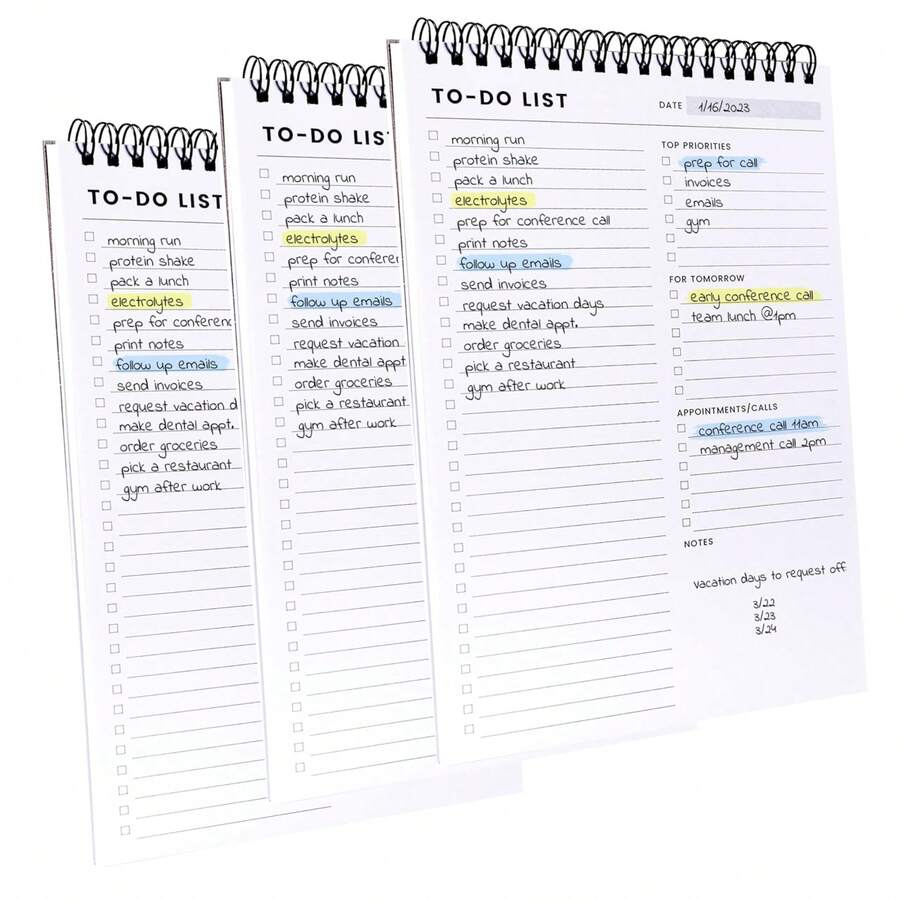 TO-DO LIST
morning run
protein shake
pack a lunch
electrolytes
prep for conferenc
print notes
follow up emails
send invoices
request vacation d
make dental appt.
order groceries
pick a restaurant
gym after work
TO-DO LIS
morning run
protein shake
pack a lunch
electrolytes
prep for confere
print notes
follow up emails
send invoices
request vacation
make dental appt
order groceries
pick a restaurant
gym after work
TO-DO LIST
morning run
protein shake
pack a lunch
electrolytes
prep for conference call
print notes
follow up emails
send invoices
request vacation days
make dental appt.
order groceries
pick a restaurant
gym after work
DATE 1/16/2023
TOP PRIORITIES
prep for call
invoices
emails
gym
FOR TOMORROW
early conference call
team lunch @1pm
APPOINTMENTS/CALLS
conference call 11am
management call 2pm
NOTES
vacation days to request off:
3/22
3/23
3/24